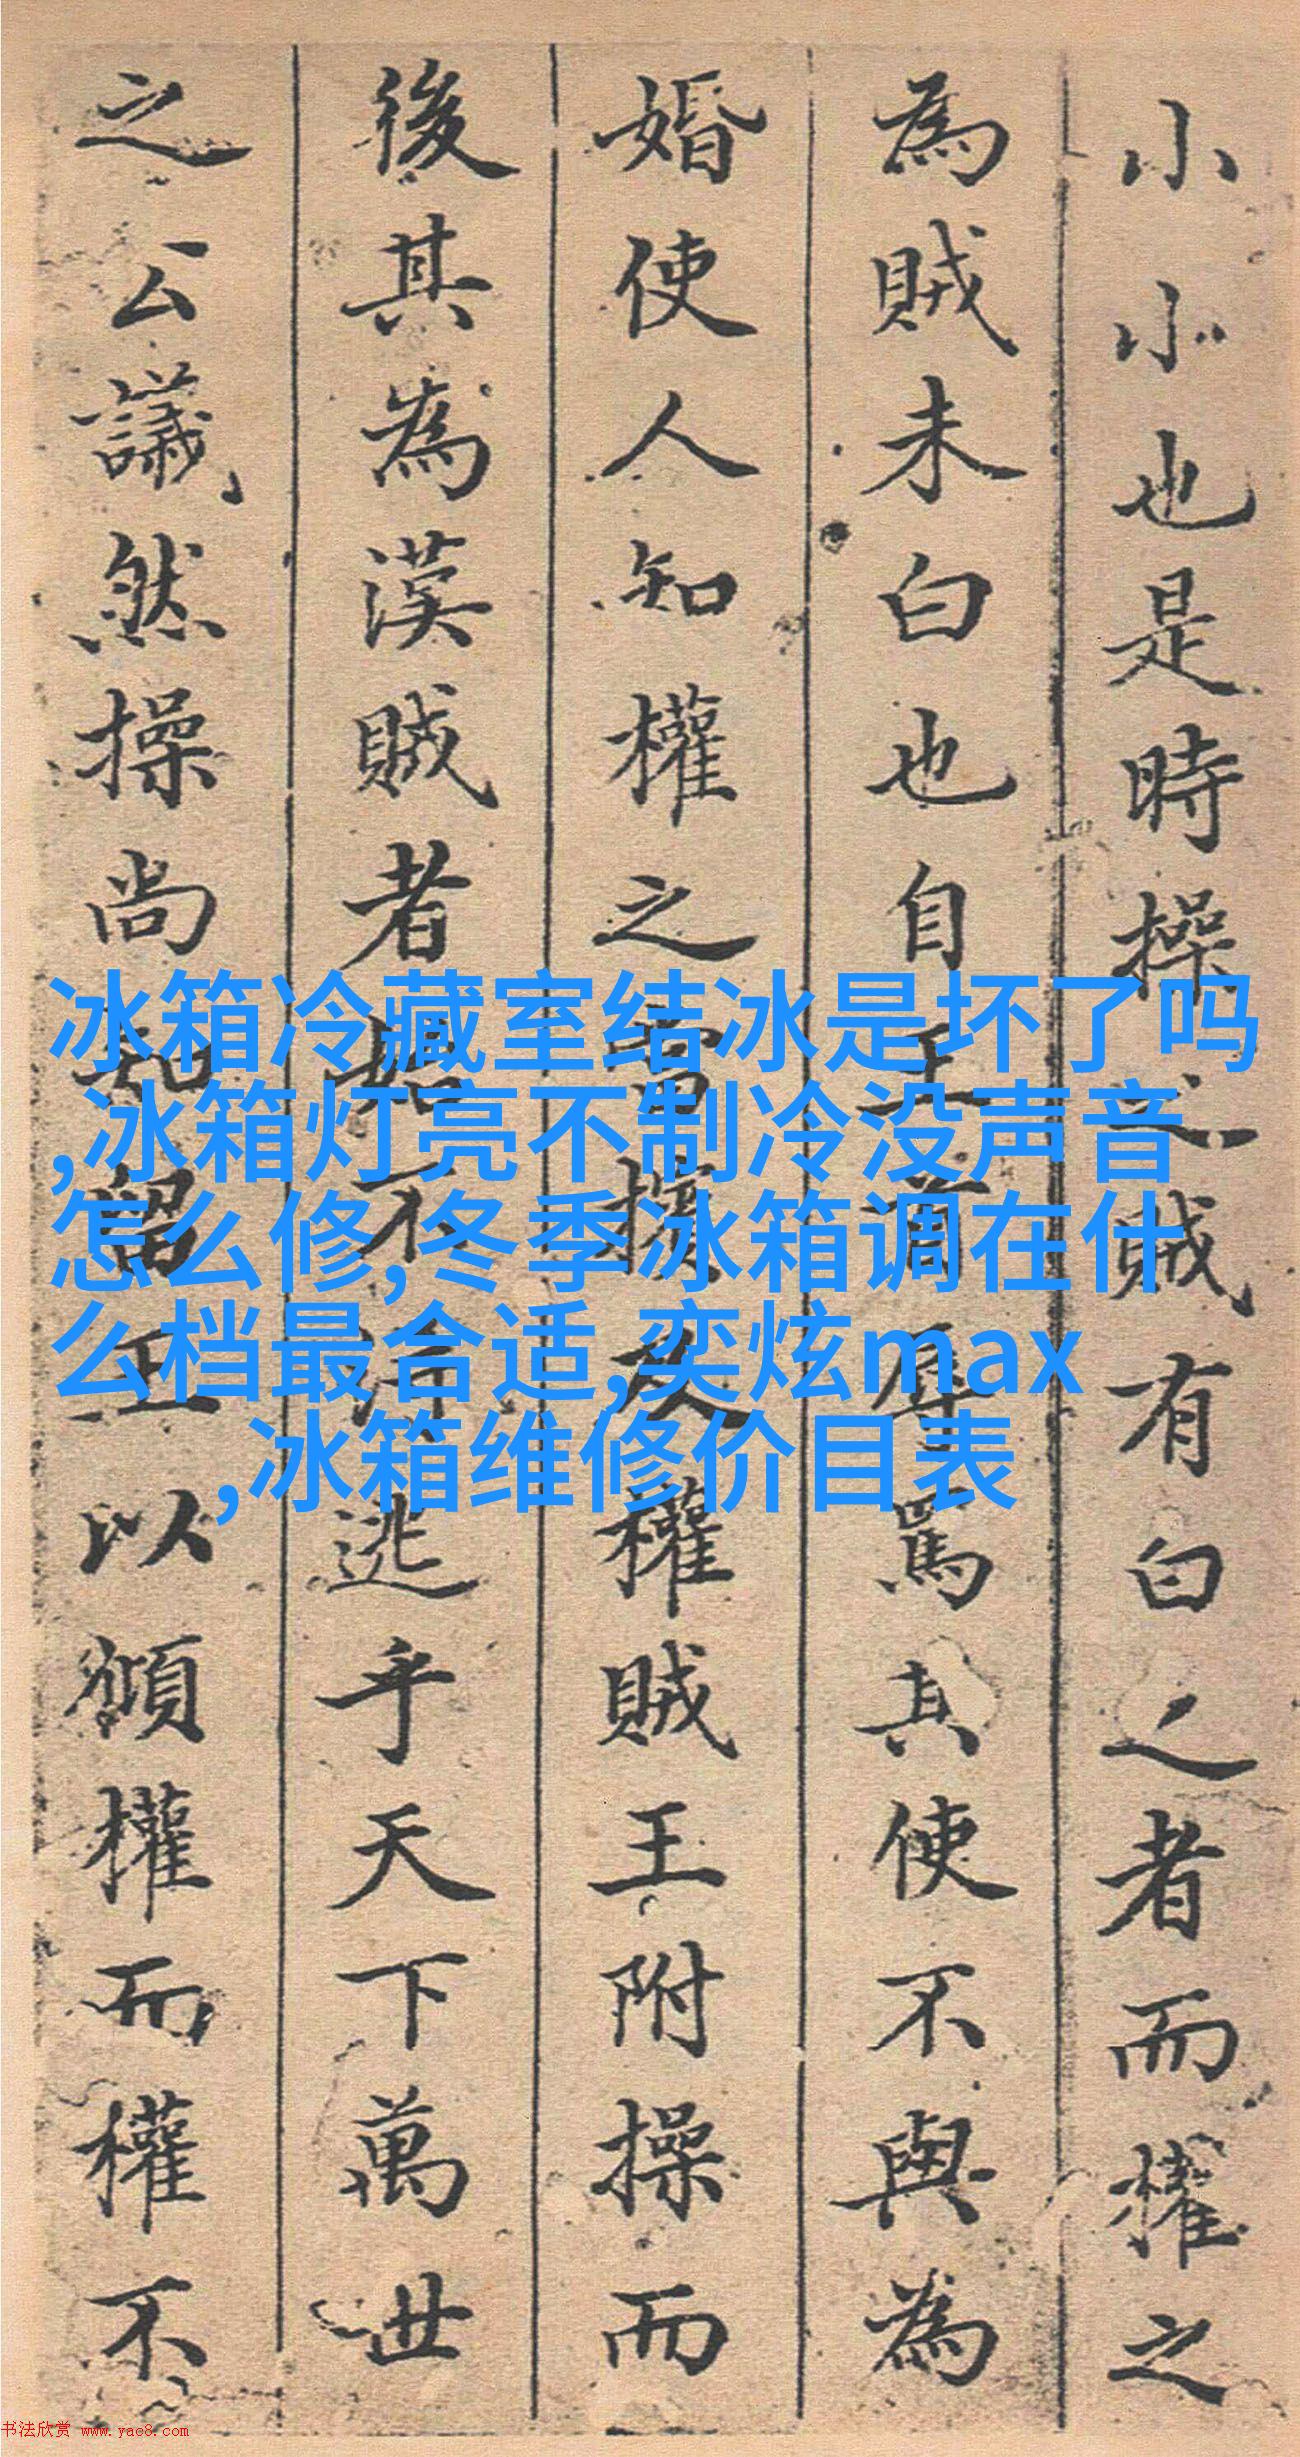 小小也是時操之賊有白之者而權之
為賊未白也自王辱罵其使不與為
婚使人知權之當權賊王附操而
後其為漢賊者始不逃乎天下萬世
之公議然操尚知留王以權而權不
冰箱冷藏室结冰是坏了吗
,冰箱灯亮不制冷没声音
怎么修,冬季冰箱调在什
么档最合适,奕炫max
,冰箱维修价目表
书法欣赏 www.yac8.com